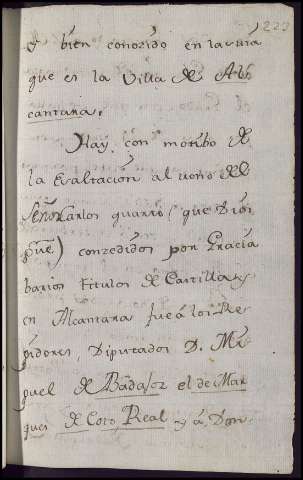 223
es bien conozido en la curia
que es la Villa de Al-
cantara.
Hay con motibo de
la Exaltacion al trono del
Señor Carlos quarto (que Dios
gue) conzedidos por Gracia
barios titulos de Castilla, y
en Alcantara fue á los Re-
gidores, Diputados D. Mi-
guel de Badajoz el de Mar-
ques de Coto Real y á, Don